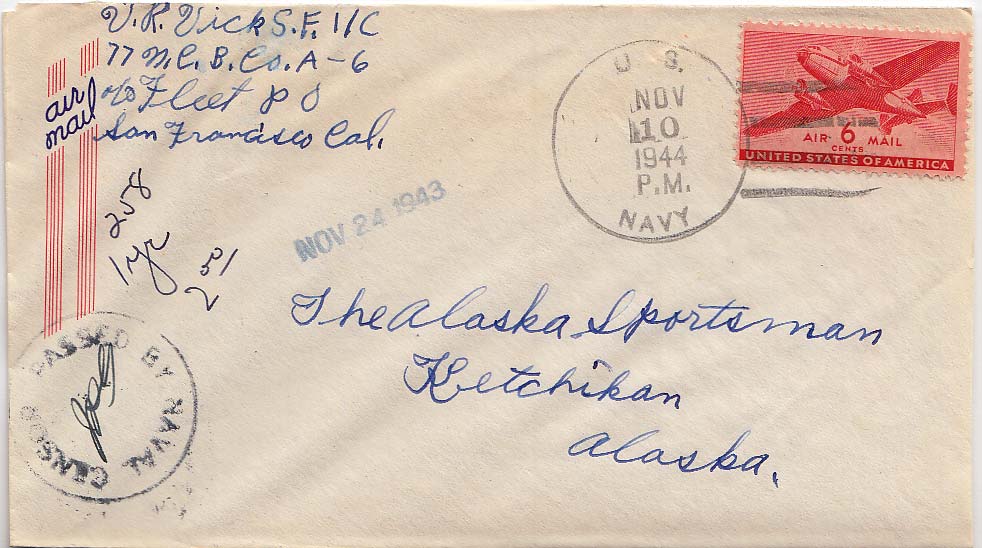 V.R. Vick S.F. 1/C
77 N.C.B. Co. A-6
c/o Fleet P O
San Francisco Cal.
air
mail
U. S.
NOV
10
1944
P.M.
NAVY
AIR 6 MAIL
CENTS
UNITED STATES OF AMERICA
258
1 yr
251
NOV 24 1943
The Alaska Sportsman
Ketchikan
Alaska.
PASSED BY NAVAL CENSOR